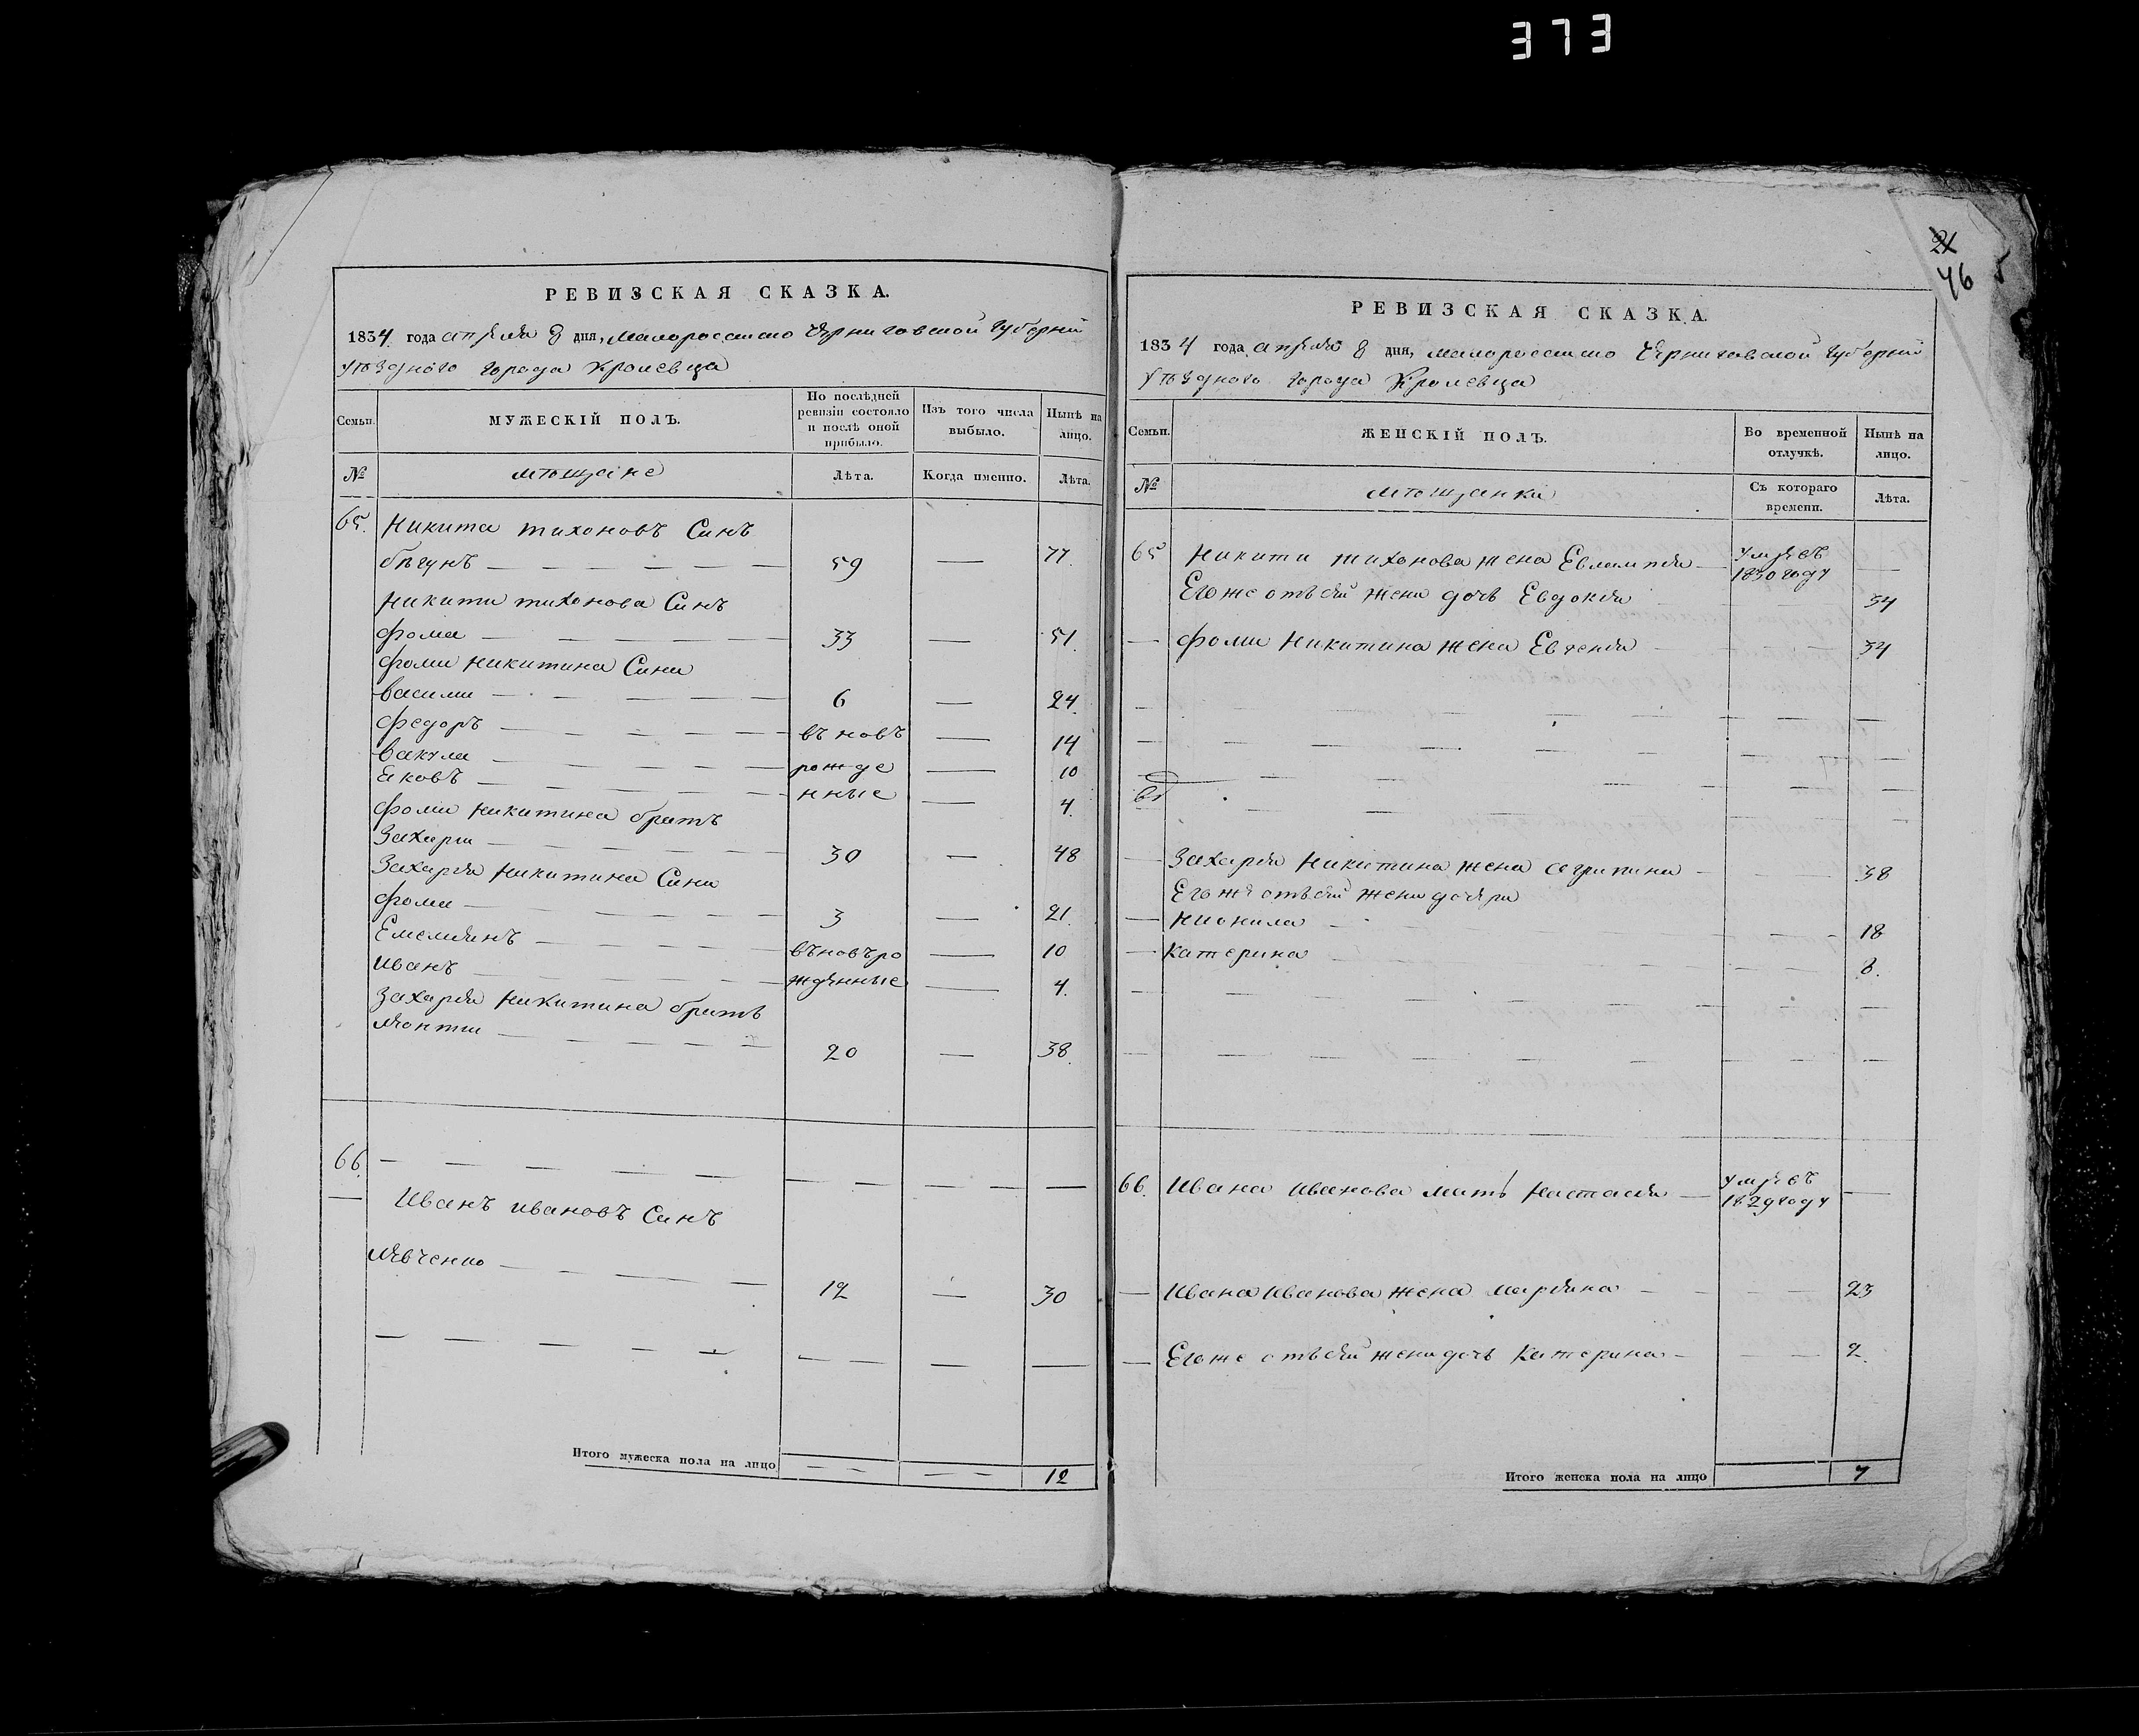 373
РЕВИЗСКАЯ СКАЗКА.
1834 года апреля 8 дня, малороссийско Черниговской губернии
уѣздного города Кролевца
Семьи.
МУЖЕСКІЙ ПОЛЪ.
По послѣдней ревизіи состояло и послѣ оной прибыло.
Изъ того числа выбыло.
Нынѣ на лицо.
№
мѣщане
Лѣта.
Когда именно.
Лѣта.
65. Никита тихоновъ Синъ
бѣгунъ — 59 — 77.
Никити тихонова Синъ
фома — 33 — 51.
фоми Никитина Сини
васили — 6 — 24.
федоръ — въ новъ — 14
вакула — рожде — 10
яковъ — нные — 4.
фоми Никитина братъ
Захари — 30 — 48
Захарія Никитина Сини
фома — 3 — 21.
Емелиянъ — въновъро — 10
иванъ — жденные — 4.
Захарія Никитина братъ
20 — 38.
66. — — — — —
Иванъ ивановъ Синъ
Левченко — 12 — 30
— — — —
Итого мужеска пола на лицо — — 12
21
46
5
РЕВИЗСКАЯ СКАЗКА.
1834 года апреля 8 дня, малороссийско Черниговской губернии
уѣздного города Кролевца
Семьи.
ЖЕНСКІЙ ПОЛЪ.
Во временной отлучкѣ.
Нынѣ на лицо.
№
мѣщанки
Съ котораго времени.
Лѣта.
65 Никити тихонова жена Евлампія — умре въ 1830 году —
Егоже отъ сей жени дочъ Евдокія 34
— фоми Никитина жена Евгенія 34
— Захарія Никитина жена агрипина — 38
Егоже отъ сей жени дочери
— Неонила — 18
— катерина 8.
66. Ивана иванова мать Настасія — умре въ 1829 году —
— Ивана Иванова жена марина 23
— Егоже отъ сей жени дочъ катерина — 2.
Итого женска пола на лицо 7